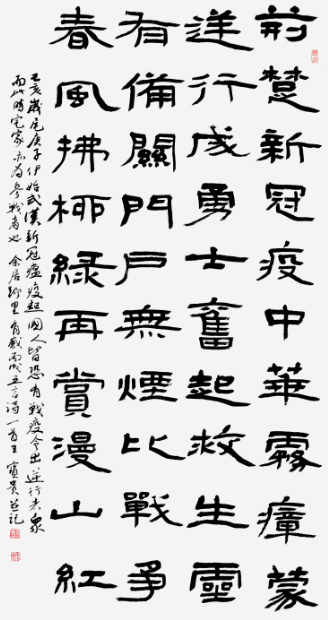 荊楚新冠疫中華霧瘴蒙
逆行成勇士奮起救生靈
有備關門戶無煙比戰爭
春風拂柳綠再賞漫山紅
己亥歲尾庚子伊始武漢新冠瘟疫起國人皆恐有戰疫令出逆行者衆
而此時宅家亦為參戰者也余居鄉里有感而成五言詩一首王寶貴並記